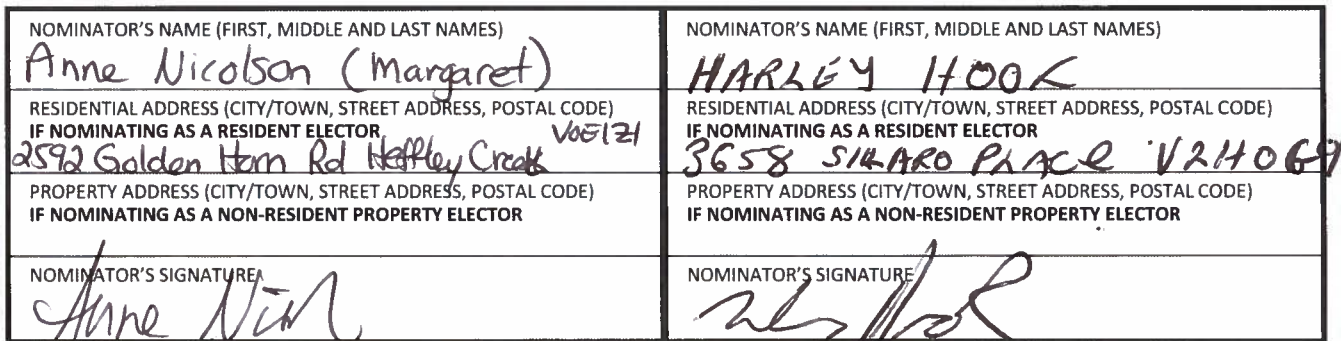 NOMINATOR'S NAME (FIRST, MIDDLE AND LAST NAMES)
Anne Nicolson (Margaret)
RESIDENTIAL ADDRESS (CITY/TOWN, STREET ADDRESS, POSTAL CODE)
IF NOMINATING AS A RESIDENT ELECTOR
V0E1Z1
2592 Golden Horn Rd Heffley Creek
PROPERTY ADDRESS (CITY/TOWN, STREET ADDRESS, POSTAL CODE)
IF NOMINATING AS A NON-RESIDENT PROPERTY ELECTOR
NOMINATOR'S SIGNATURE
Anne
NOMINATOR'S NAME (FIRST, MIDDLE AND LAST NAMES)
HARLEY HOOK
RESIDENTIAL ADDRESS (CITY/TOWN, STREET ADDRESS, POSTAL CODE)
IF NOMINATING AS A RESIDENT ELECTOR
3658 PLACE V2H0G9
PROPERTY ADDRESS (CITY/TOWN, STREET ADDRESS, POSTAL CODE)
IF NOMINATING AS A NON-RESIDENT PROPERTY ELECTOR
NOMINATOR'S SIGNATURE